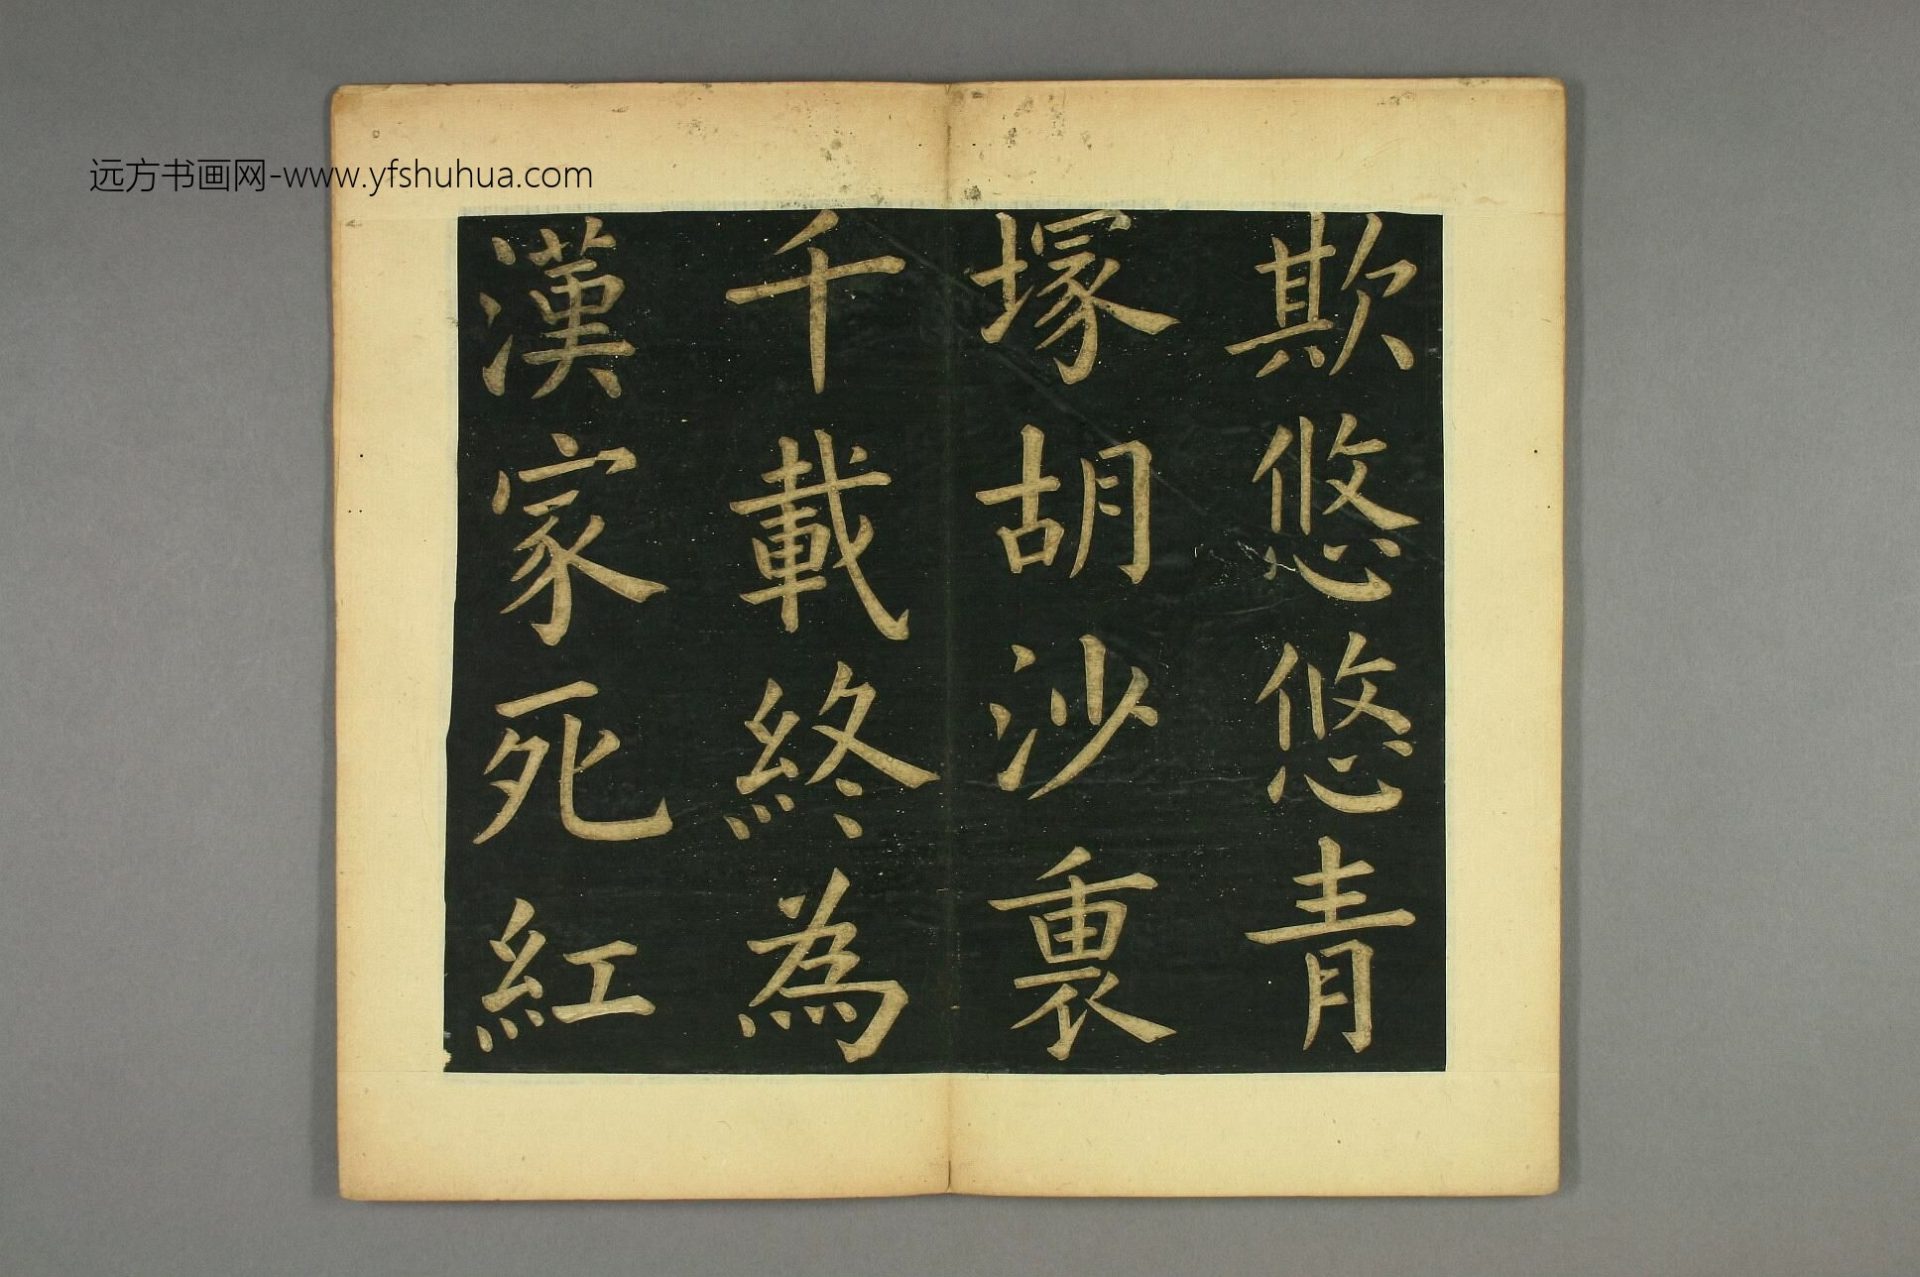 远方书画网-www.yfshuhua.com
欺悠悠青
塚胡沙裏
千載終為
漢家死紅